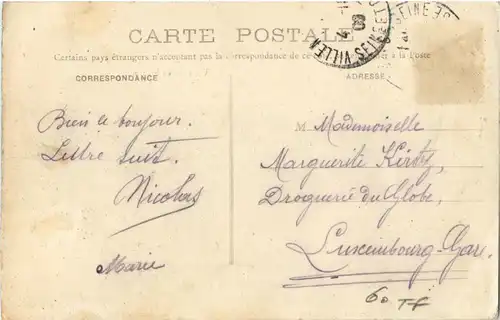 CARTE POSTALE
Certains pays étrangers n'acceptent pas la correspondance de ce à la Poste
CORRESPONDANCE
ADRESSE
Bien le bonjour.
Lettre suit.
Nicolas
Marie
M Mademoiselle
Marguerite
Droguerie du Globe,
Luxembourg-Gare.
60